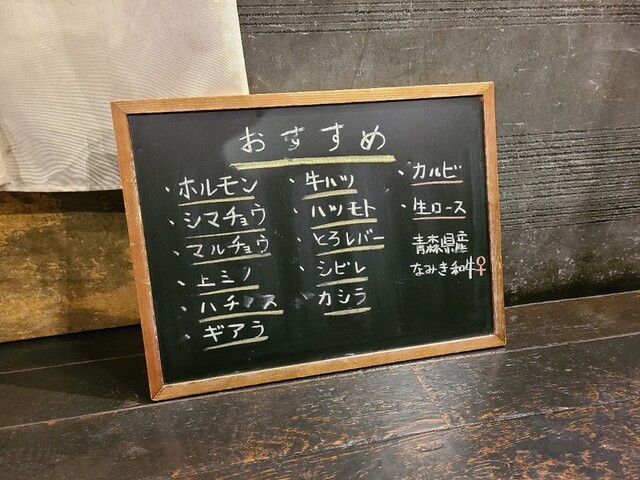 おすすめ
・ホルモン
・シマチョウ
・マルチョウ
・上ミノ
・ハチノス
・ギアラ
・牛ハツ
・ハツモト
・とろレバー
・シビレ
・カシラ
・カルビ
・生ロース
青森県産
なみき和牛♀